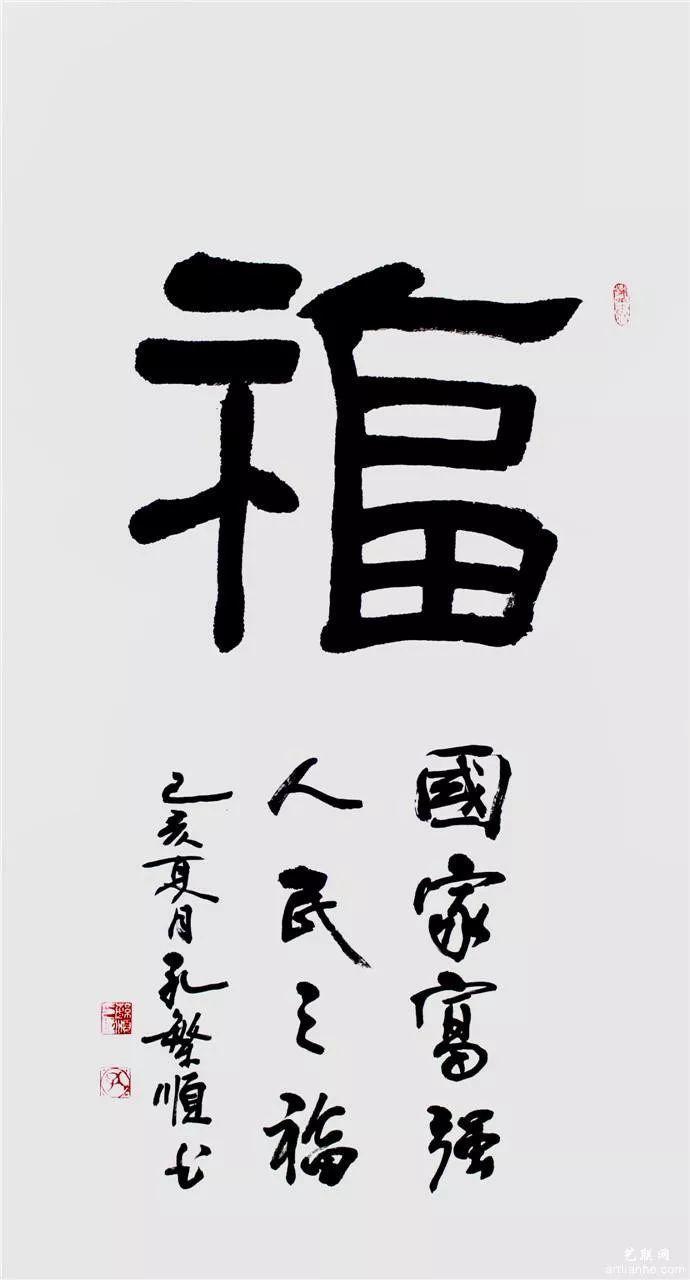 福
國家富强
人民之福
己亥夏月孔繁順书
艺联网
artlianhe.com